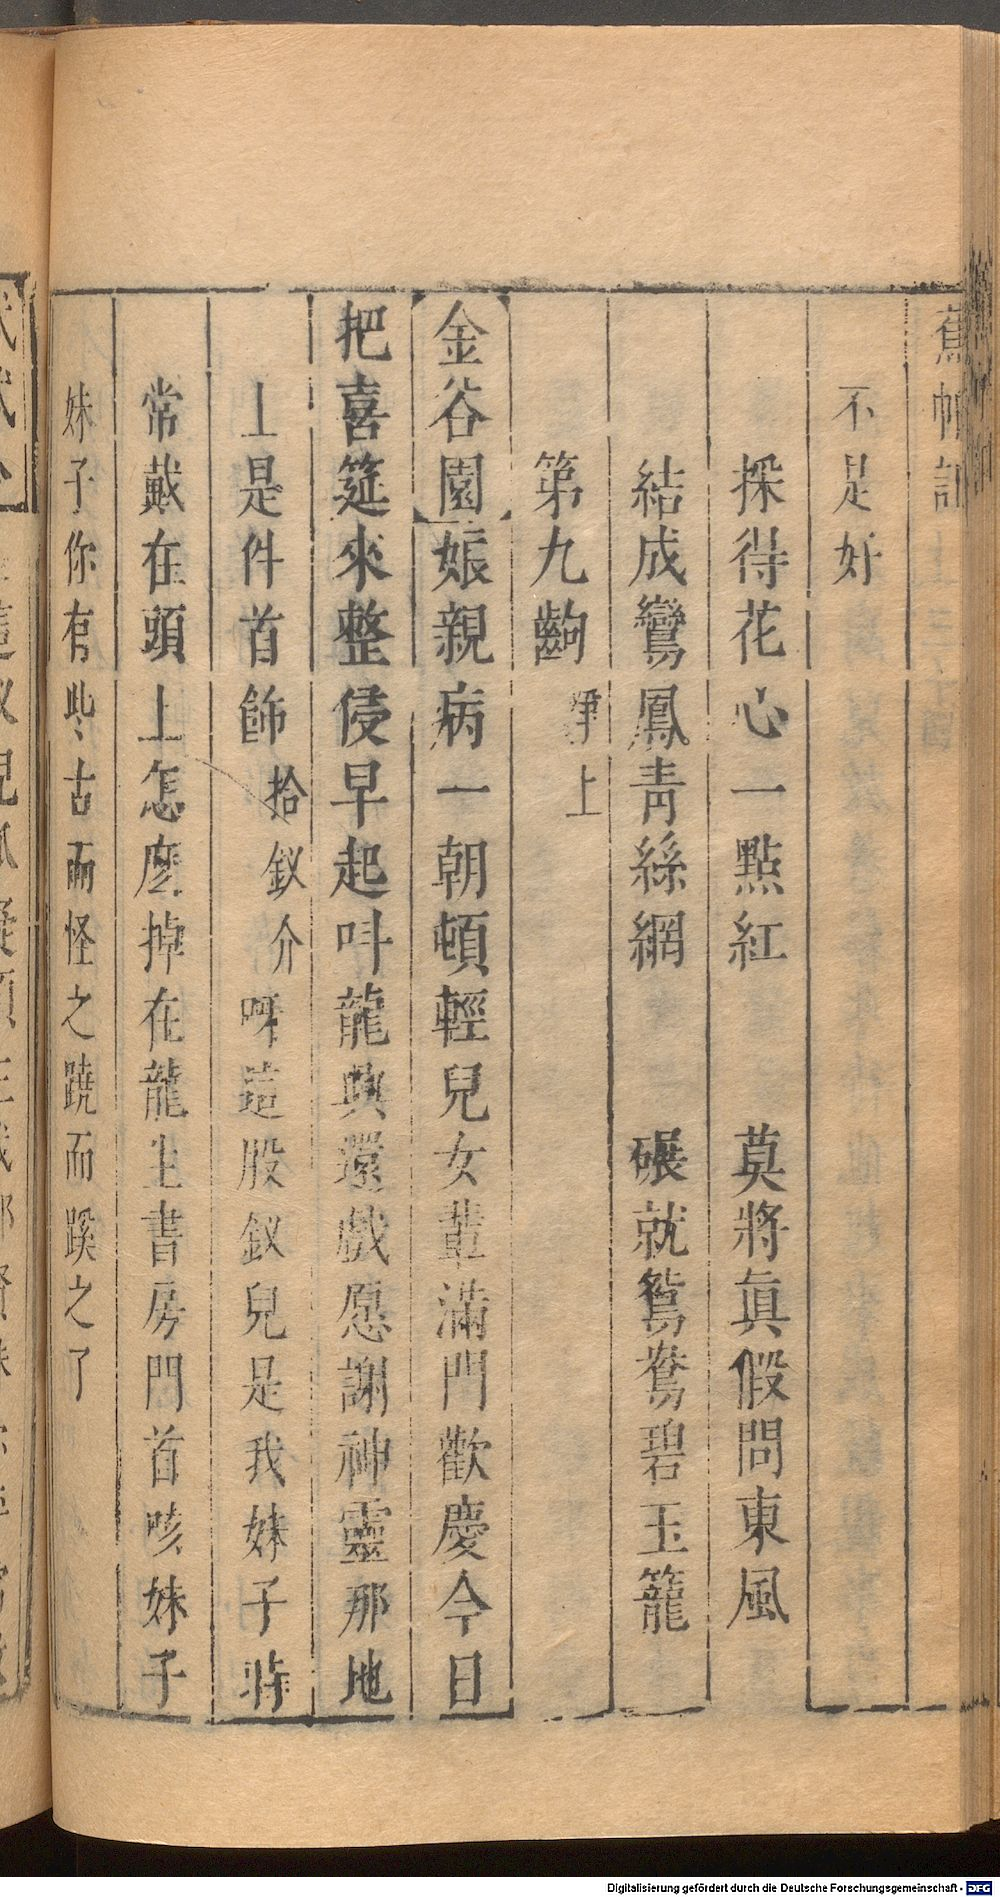 蕉帕記
不是好
採得花心一點紅　莫將眞假問東風
結成鸞鳳靑絲網　碾就鴛鴦碧玉籠
第九齣　淨上
金谷園娘親病一朝頓輕兒女輩滿門歡慶今日
把喜筵來整侵早起呌龍興還戲愿謝神靈那地
上是件首飾拾釵介呀這股釵兒是我妹子時
常戴在頭上怎麽掉在龍生書房門首咳妹子
妹子你有些古而怪之蹺而蹊之了
Digitalisierung gefördert durch die Deutsche Forschungsgemeinschaft - DFG